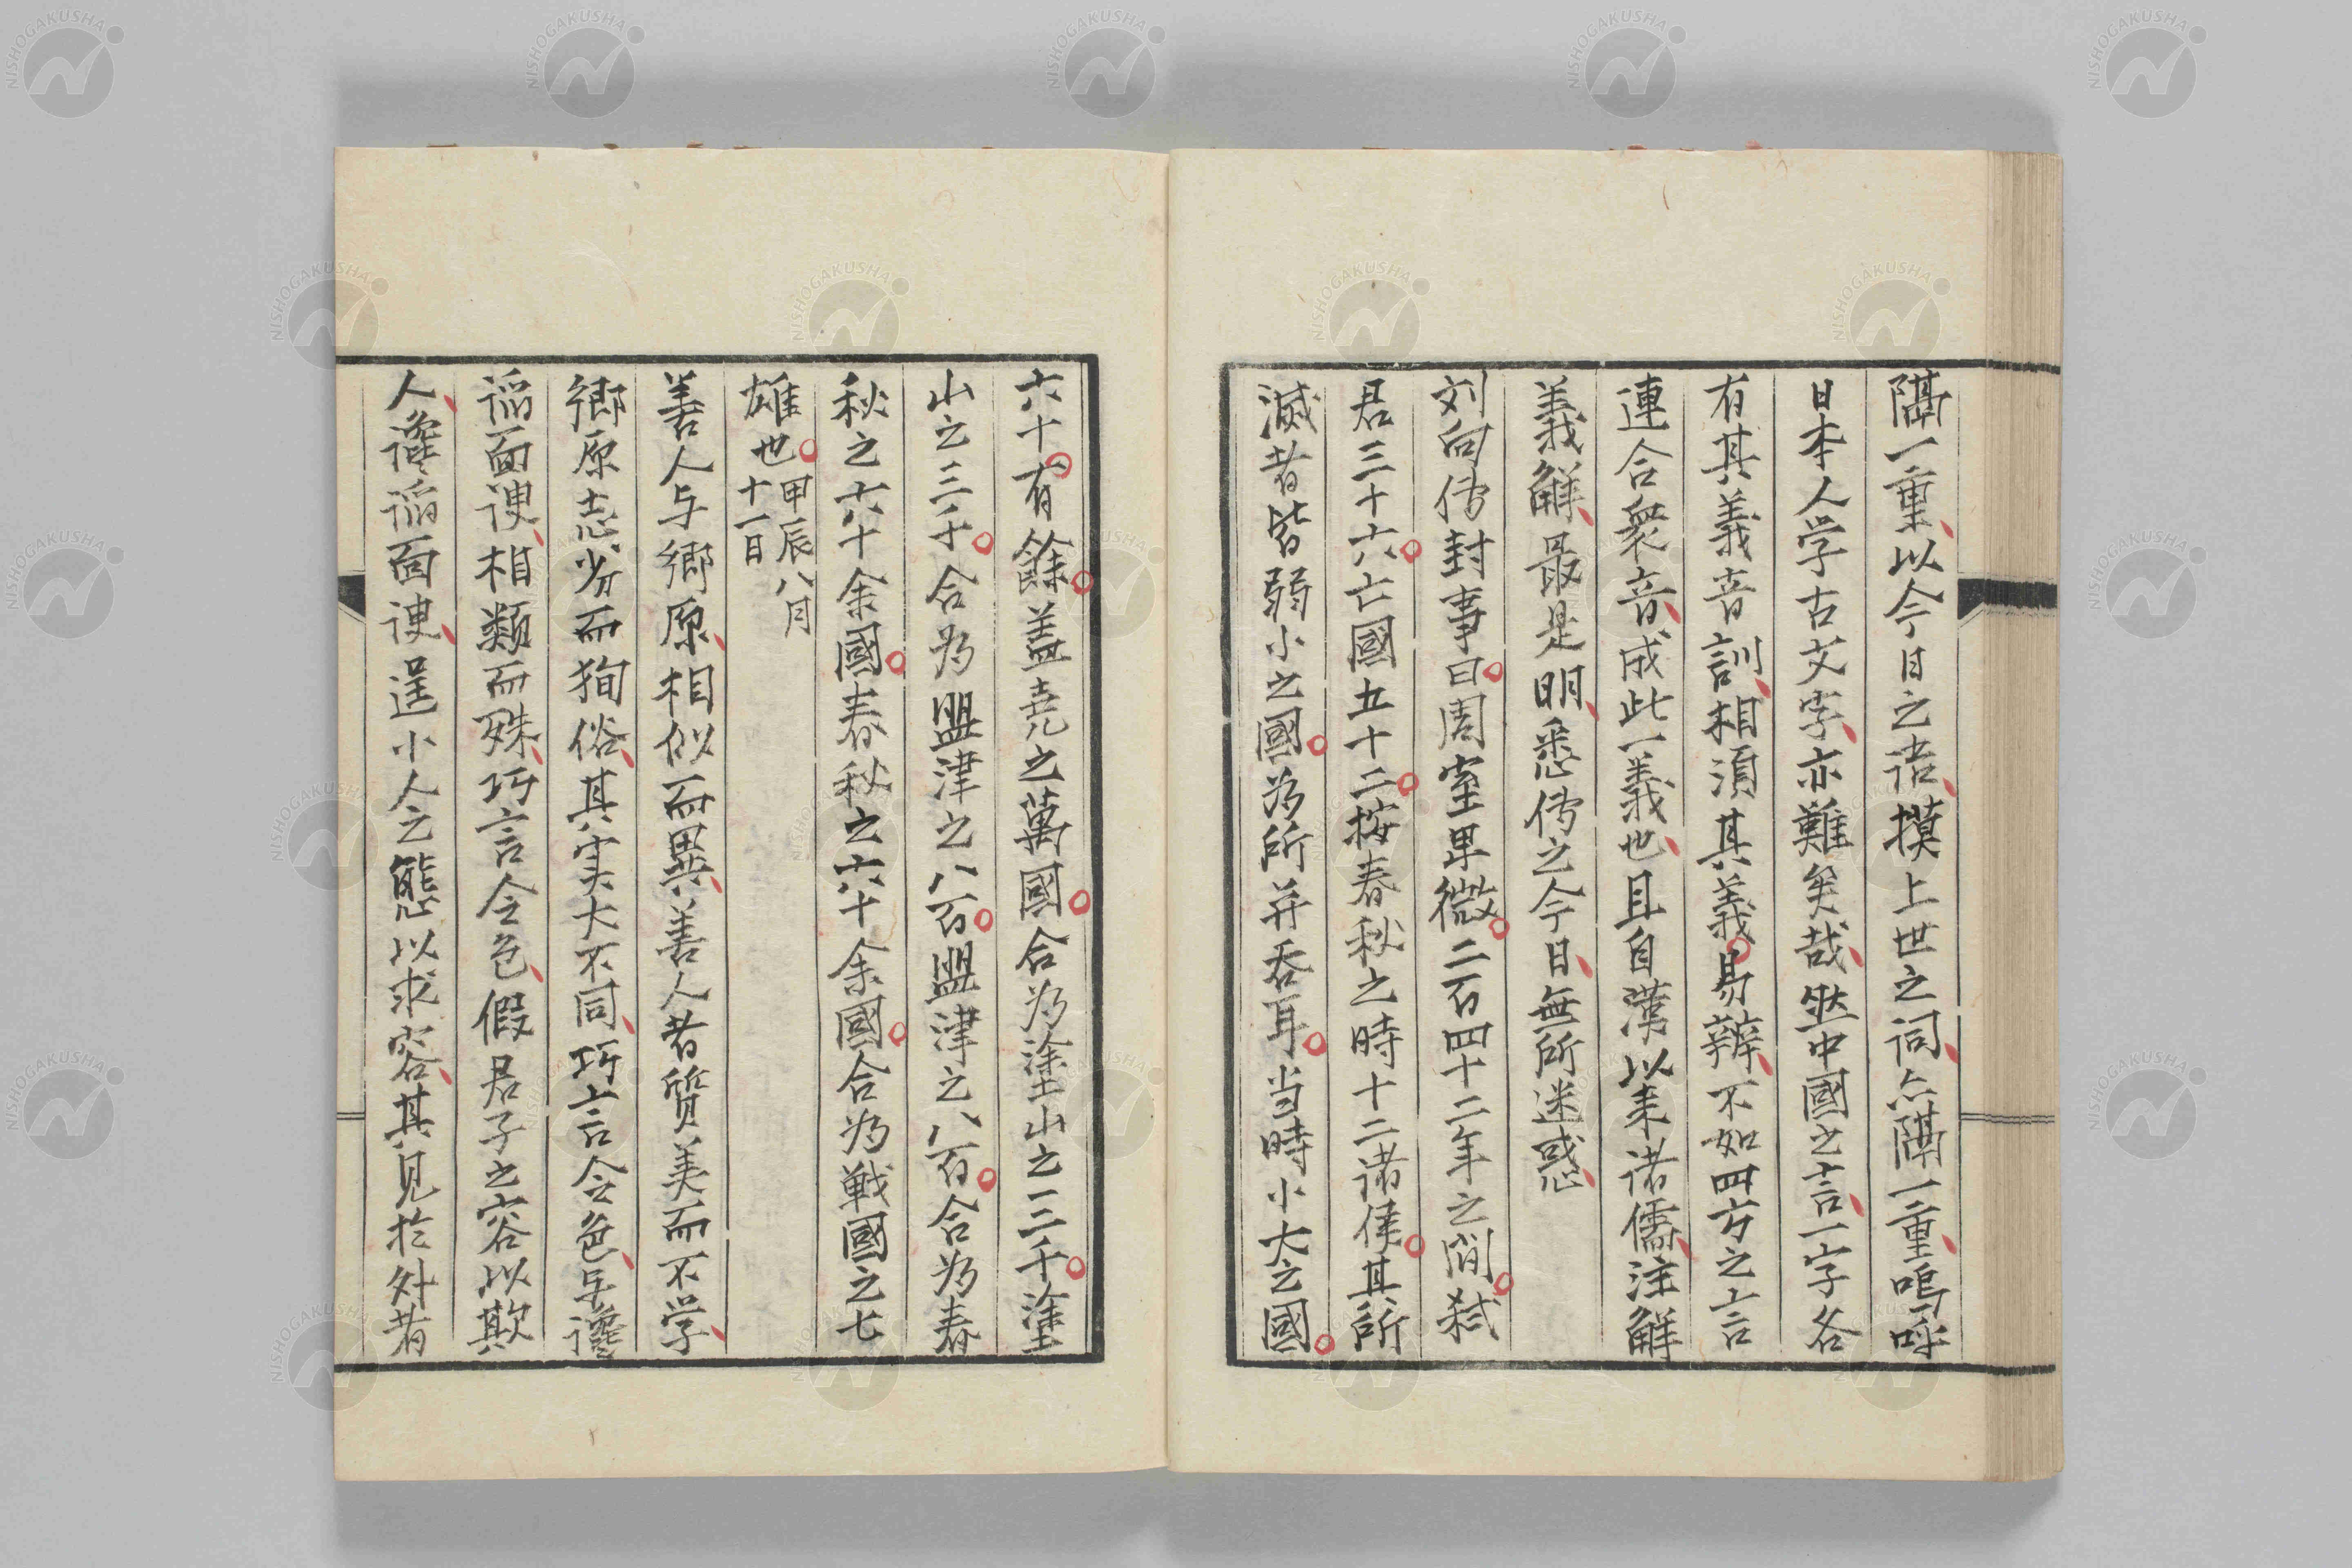 隔一重以今日之语摸上世之词亦隔一重嗚呼
日本人学古文字亦難矣哉然中國之言一字各
有其義音訓相須其義易辨不如四方之言
連合衆音成此一義也且自漢以来诸儒注解
義解最是明悉传之今日無所迷惑
刘向传封事曰周室卑微二百四十二年之间弑
君三十六亡國五十二按春秋之時十二诸侯其所
滅者皆弱小之國为所并吞耳当時小大之國
六十有餘盖尭之萬國合为塗山之三千塗
山之三千合为盟津之八百盟津之八百合为春
秋之六十余國春秋之六十余國合为戦國之七
雄也甲辰八月十一日
善人与鄉原相似而異善人者質美而不学
鄉原志劣而狥俗其实大不同巧言令色与讒
謟面諛相類而殊巧言令色假君子之容以欺
人讒謟面諛逞小人之態以求容其見於外者
NISHOGAKUSHA